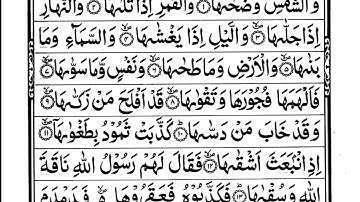 وَالشَّمْسِ وَضُحٰىهَا ۝۱ وَالْقَمَرِ اِذَا تَلٰىهَا ۝۲ وَالنَّهَارِ
اِذَا جَلّٰىهَا ۝۳ وَالَّيْلِ اِذَا يَغْشٰىهَا ۝۴ وَالسَّمَآءِ وَمَا
بَنٰىهَا ۝۵ وَالْاَرْضِ وَمَا طَحٰىهَا ۝۶ وَنَفْسٍ وَّمَا سَوّٰىهَا ۝۷
فَاَلْهَمَهَا فُجُوْرَهَا وَتَقْوٰىهَا ۝۸ قَدْ اَفْلَحَ مَنْ زَكّٰىهَا ۝۹
وَقَدْ خَابَ مَنْ دَسّٰىهَا ۝۱۰ كَذَّبَتْ ثَمُوْدُ بِطَغْوٰىهَا ۝۱۱
اِذِ انْۢبَعَثَ اَشْقٰىهَا ۝۱۲ فَقَالَ لَهُمْ رَسُوْلُ اللّٰهِ نَاقَةَ
اللّٰهِ وَسُقْيٰهَا ۝۱۳ فَكَذَّبُوْهُ فَعَقَرُوْهَا فَدَمْدَمَ